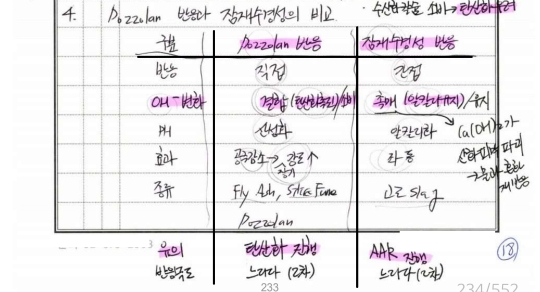 4. Pozzolan 반응과 잠재수경성의 비교
수산화칼슘 소비→탄산화 우려
구분 Pozzolan 반응 잠재수경성 반응
반응 직접 간접
OH⁻변화 결합(탄산화촉진)/소비 촉매(알칼리유지)/유지
PH 산성화 알칼리화
Ca(OH)₂가
효과 공극감소→강도↑ 좌동
장기
산화피막 파괴
종류 Fly Ash, Silica Fume 고로 Slag
Pozzolan
유의 탄산화 진행 AAR 진행
반응속도 느리다(2차) 느리다(2차)
18
233
234/552